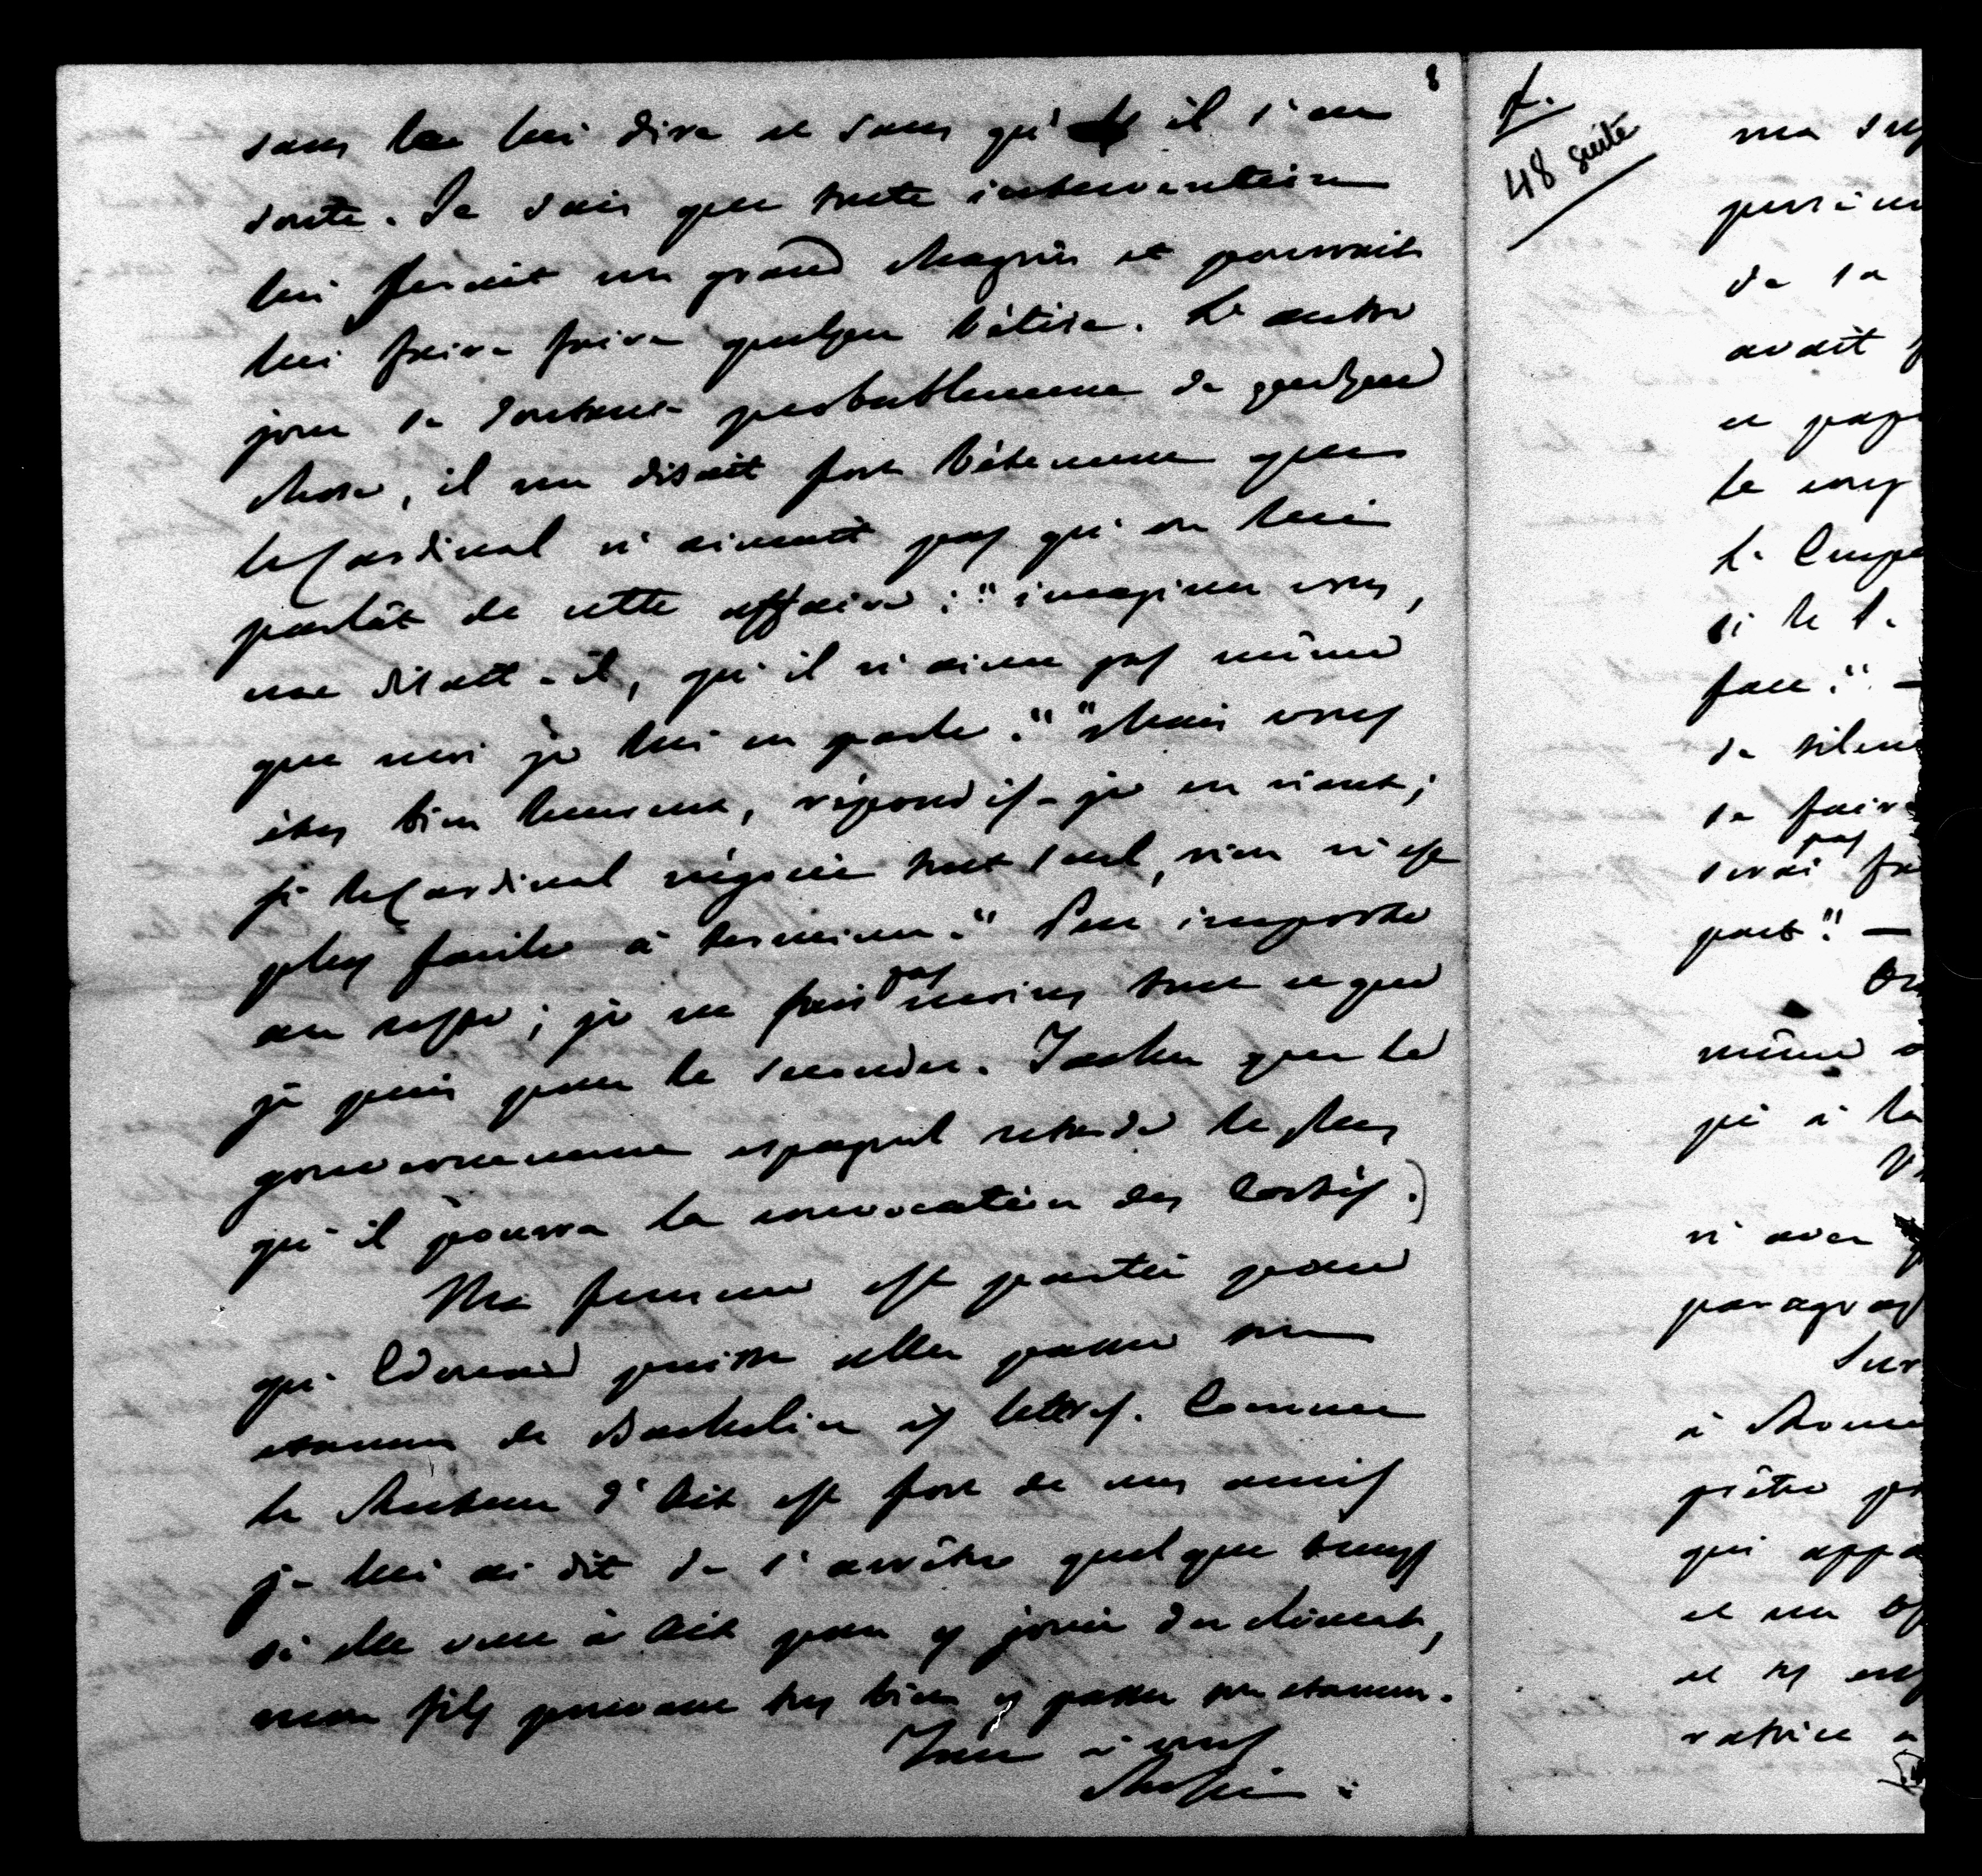 8
sans le lui dire et sans qu'il s'en
doute. Je sais que toute intervention
lui ferait un grand chagrin et pourrait
lui faire faire quelque bêtise. L'autre
jour se doutant probablement de quelque
chose, il me disait fort bêtement que
le Cardinal n'aimait pas qu'on lui
parlât de cette affaire: "imaginez vous,
me disait-il, qu'il n'aime pas même
que moi je lui en parle." "Mais vous
êtes bien heureux, répondis-je en riant;
si le Cardinal négocie tout seul, rien n'est
plus facile à terminer." Peu importe
au reste; je ne fais pas moins tout ce que
je puis pour le seconder. Tachez que le
gouvernement espagnol retarde le plus
qu'il pourra la convocation des Cortès.)
Ma femme est partie pour
qu'Edouard puisse aller passer son
examen de Bachelier ès lettres. Comme
le Recteur d'Aix est fort de mes amis
je lui ai dit de s'arrêter quelque temps
si elle veut à Aix pour y jouir du climat,
mon fils pouvant très bien y passer son examen.
Tout à vous
Rossi
f.
48 suite
de sa
avait
et
le
si le
face." —
de
se faire
serai pas
part". —
même
à la
n'avez
à Rome
prêter
qui
et un
et les